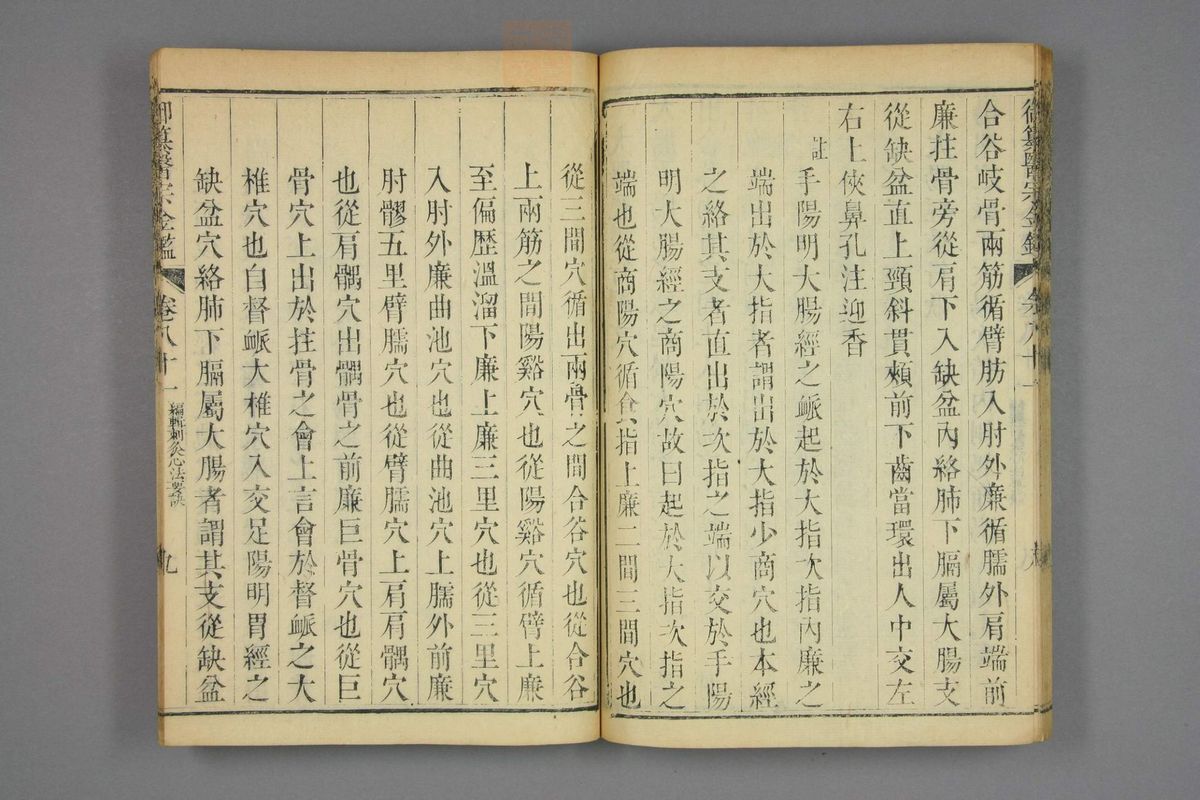 御纂醫宗金鑑
卷八十一
合谷岐骨兩筋循臂肪入肘外廉循臑外肩端前
廉拄骨旁從肩下入缺盆內絡肺下膈屬大腸支
從缺盆直上頸斜貫頰前下齒當環出人中交左
右上俠鼻孔注迎香
註
手陽明大腸經之脈起於大指次指內廉之
端出於大指者謂出於大指少商穴也本經
之絡其支者直出於次指之端以交於手陽
明大腸經之商陽穴故曰起於大指次指之
端也從商陽穴循食指上廉二間三間穴也
從三間穴循出兩骨之間合谷穴也從合谷
上兩筋之間陽谿穴也從陽谿穴循臂上廉
至偏歷溫溜下廉上廉三里穴也從三里穴
入肘外廉曲池穴也從曲池穴上臑外前廉
肘髎五里臂臑穴也從臂臑穴上肩肩髃穴
也從肩髃穴出髃骨之前廉巨骨穴也從巨
骨穴上出於拄骨之會上言會於督脈之大
椎穴也自督脈大椎穴入交足陽明胃經之
缺盆穴絡肺下膈屬大腸者謂其支從缺盆
御纂醫宗金鑑
卷八十一
編輯刺灸心法要訣
九